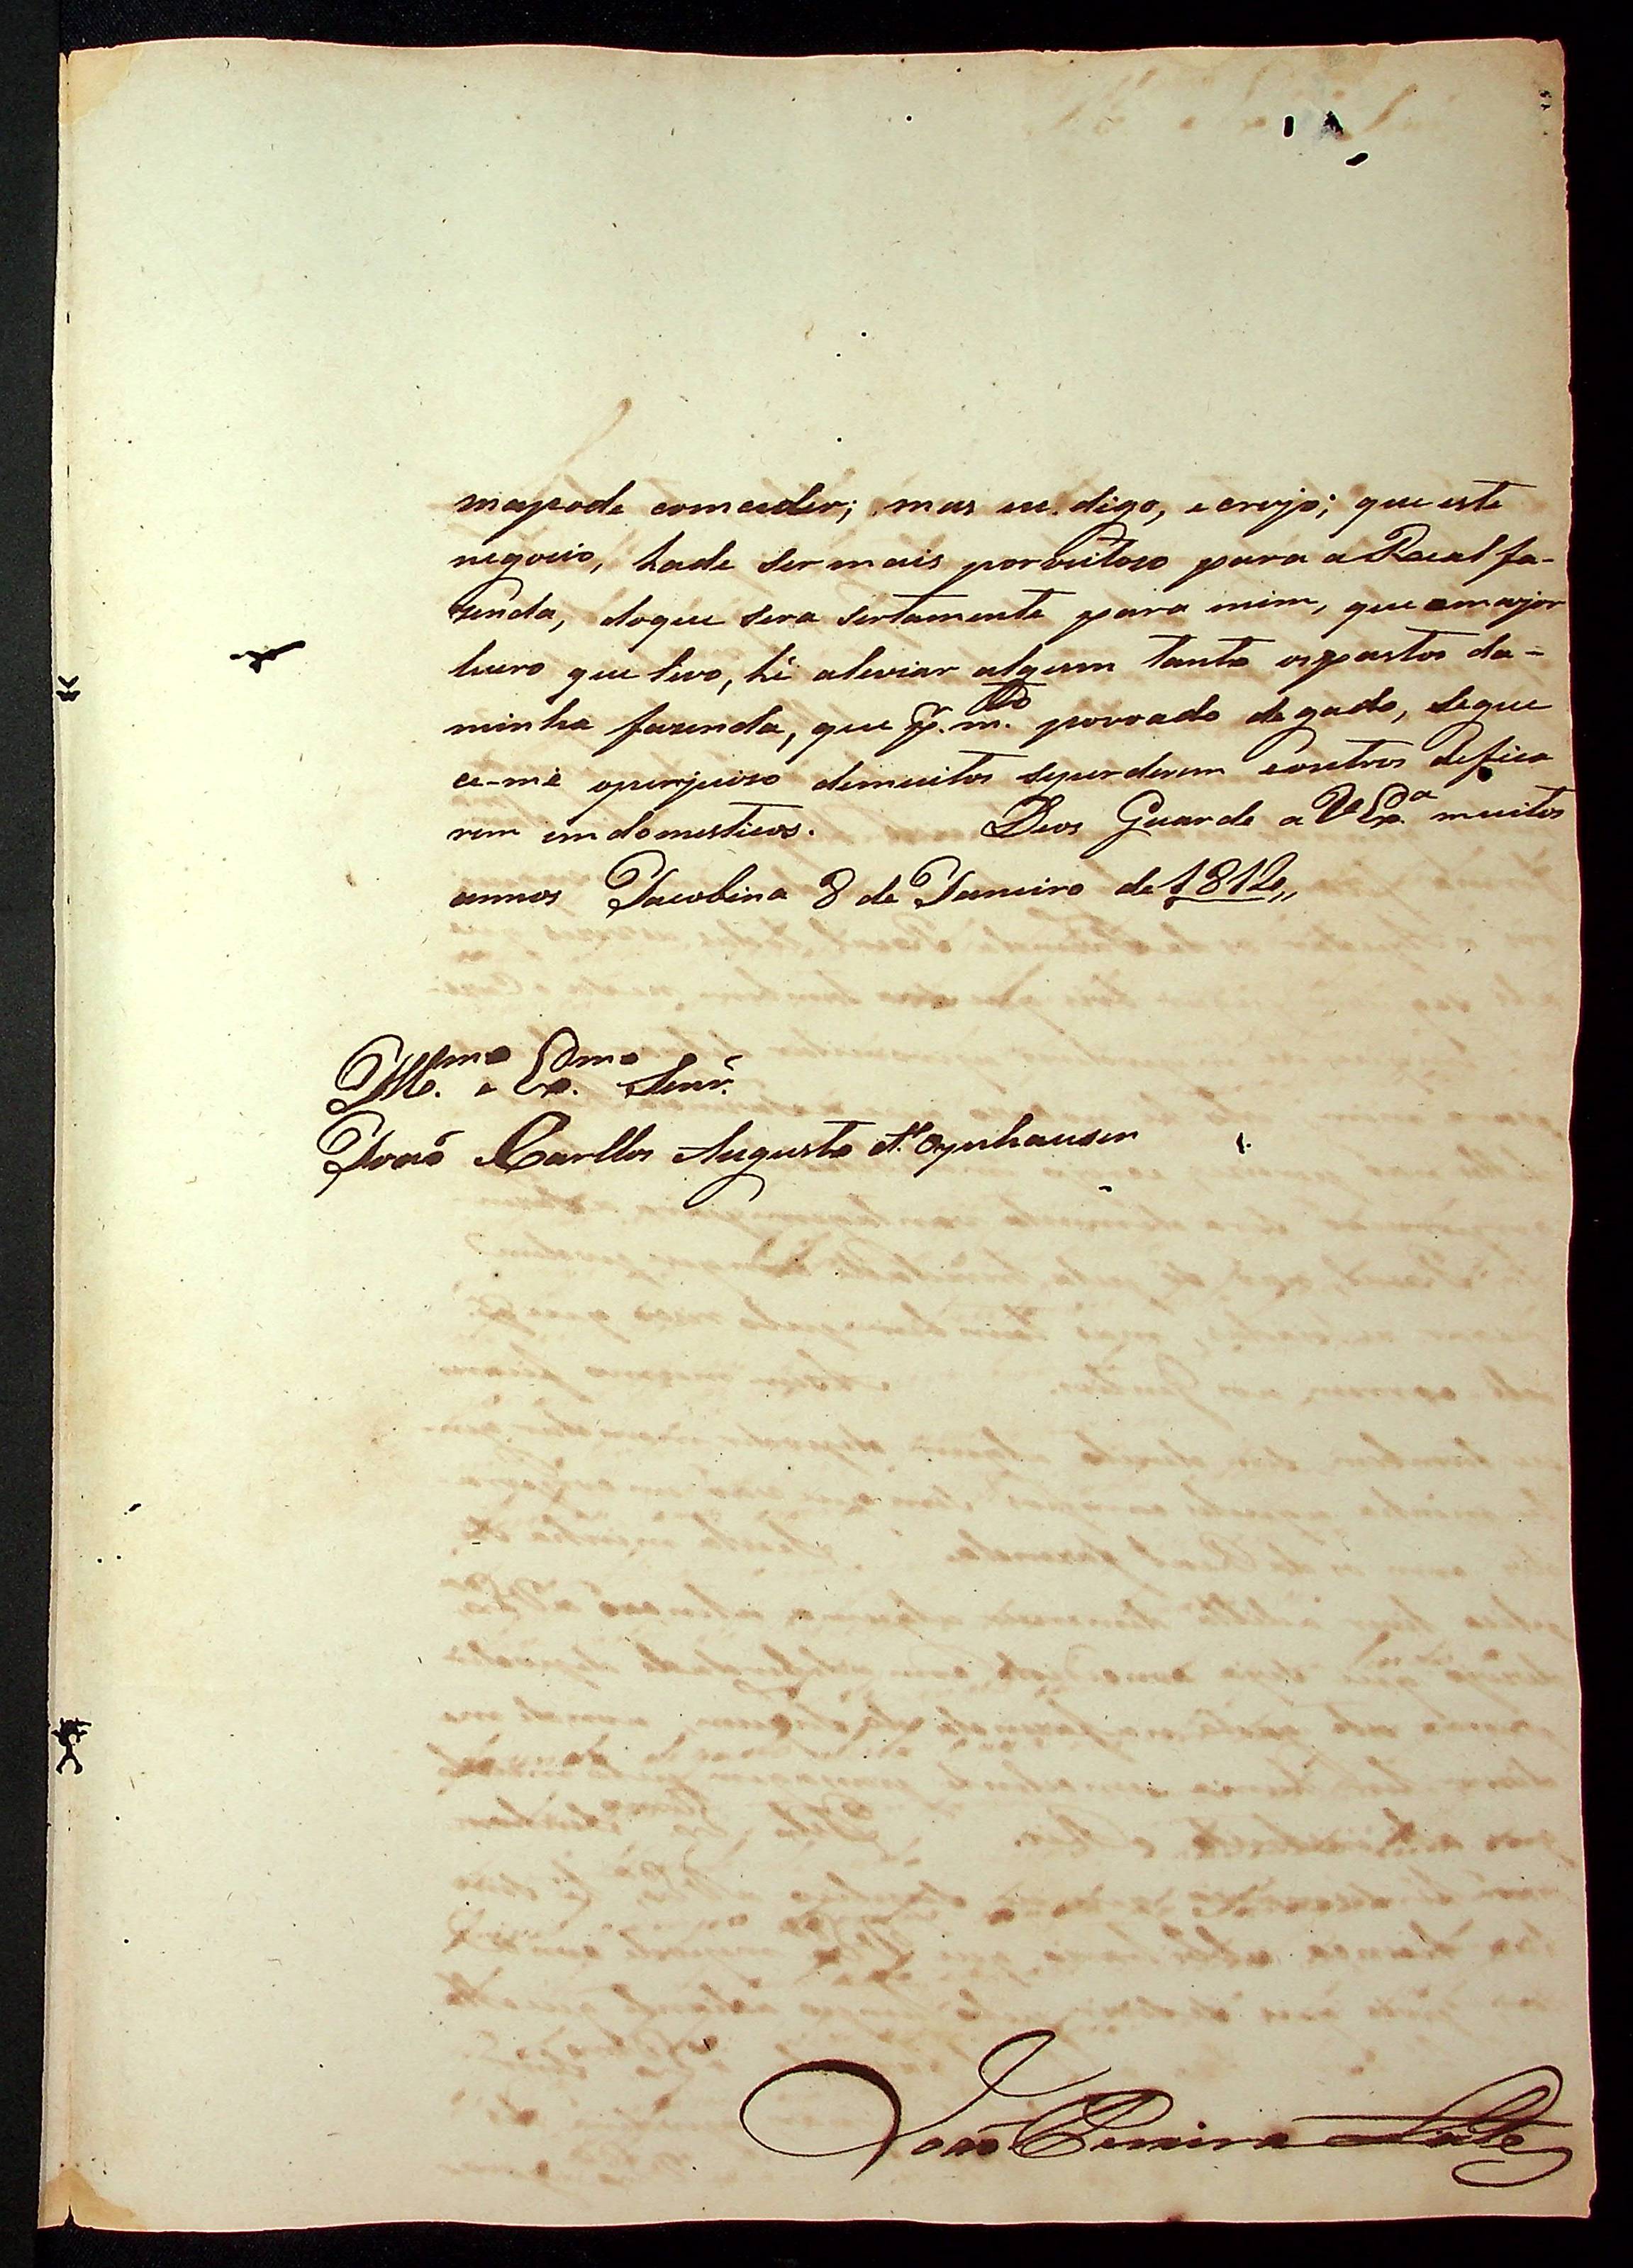 mapode comceder; mas eu digo, e creyo; que este
negocio, hade ser mais porveitozo para a Reeal fa-
zenda, doque sera sertamente para mim, que omayor
lucro que tiro, hé aleviar algum tanto ospastos da-
minha fazenda, que p.r m.to povoado de gado, segue
ce-mê operjuizo demuitos seperderem eoutros deficа
rem imdomesticos. Deos Guarde a V Ex.a muitos
annos Jacobina 8 de Janeiro de 1812,,
Ill.mo e Ex.mo Senr.
Joaõ Carllos Augusto d'Oyenhausen
Joaõ Pereira Leite